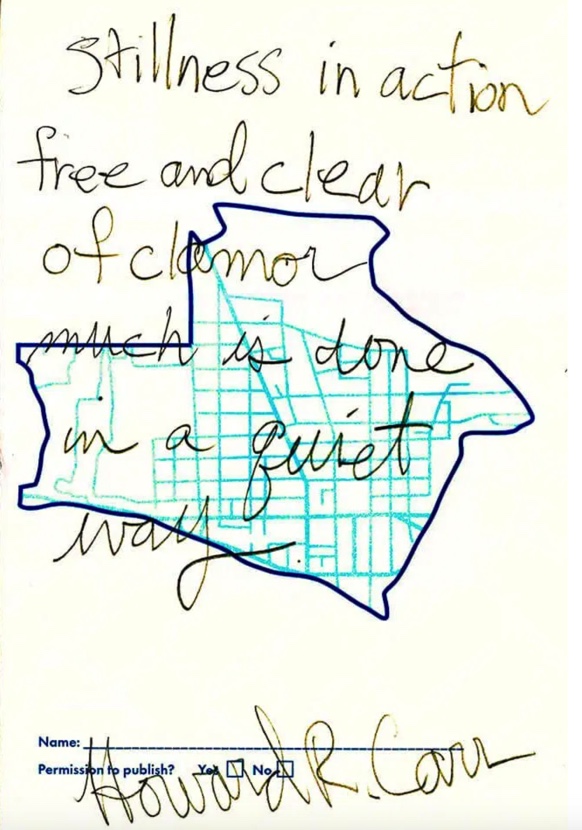 stillness in action
free and clear
of clamor
much is done
in a quiet
way.
Name: Howard R. Carr
Permission to publish? Yes No